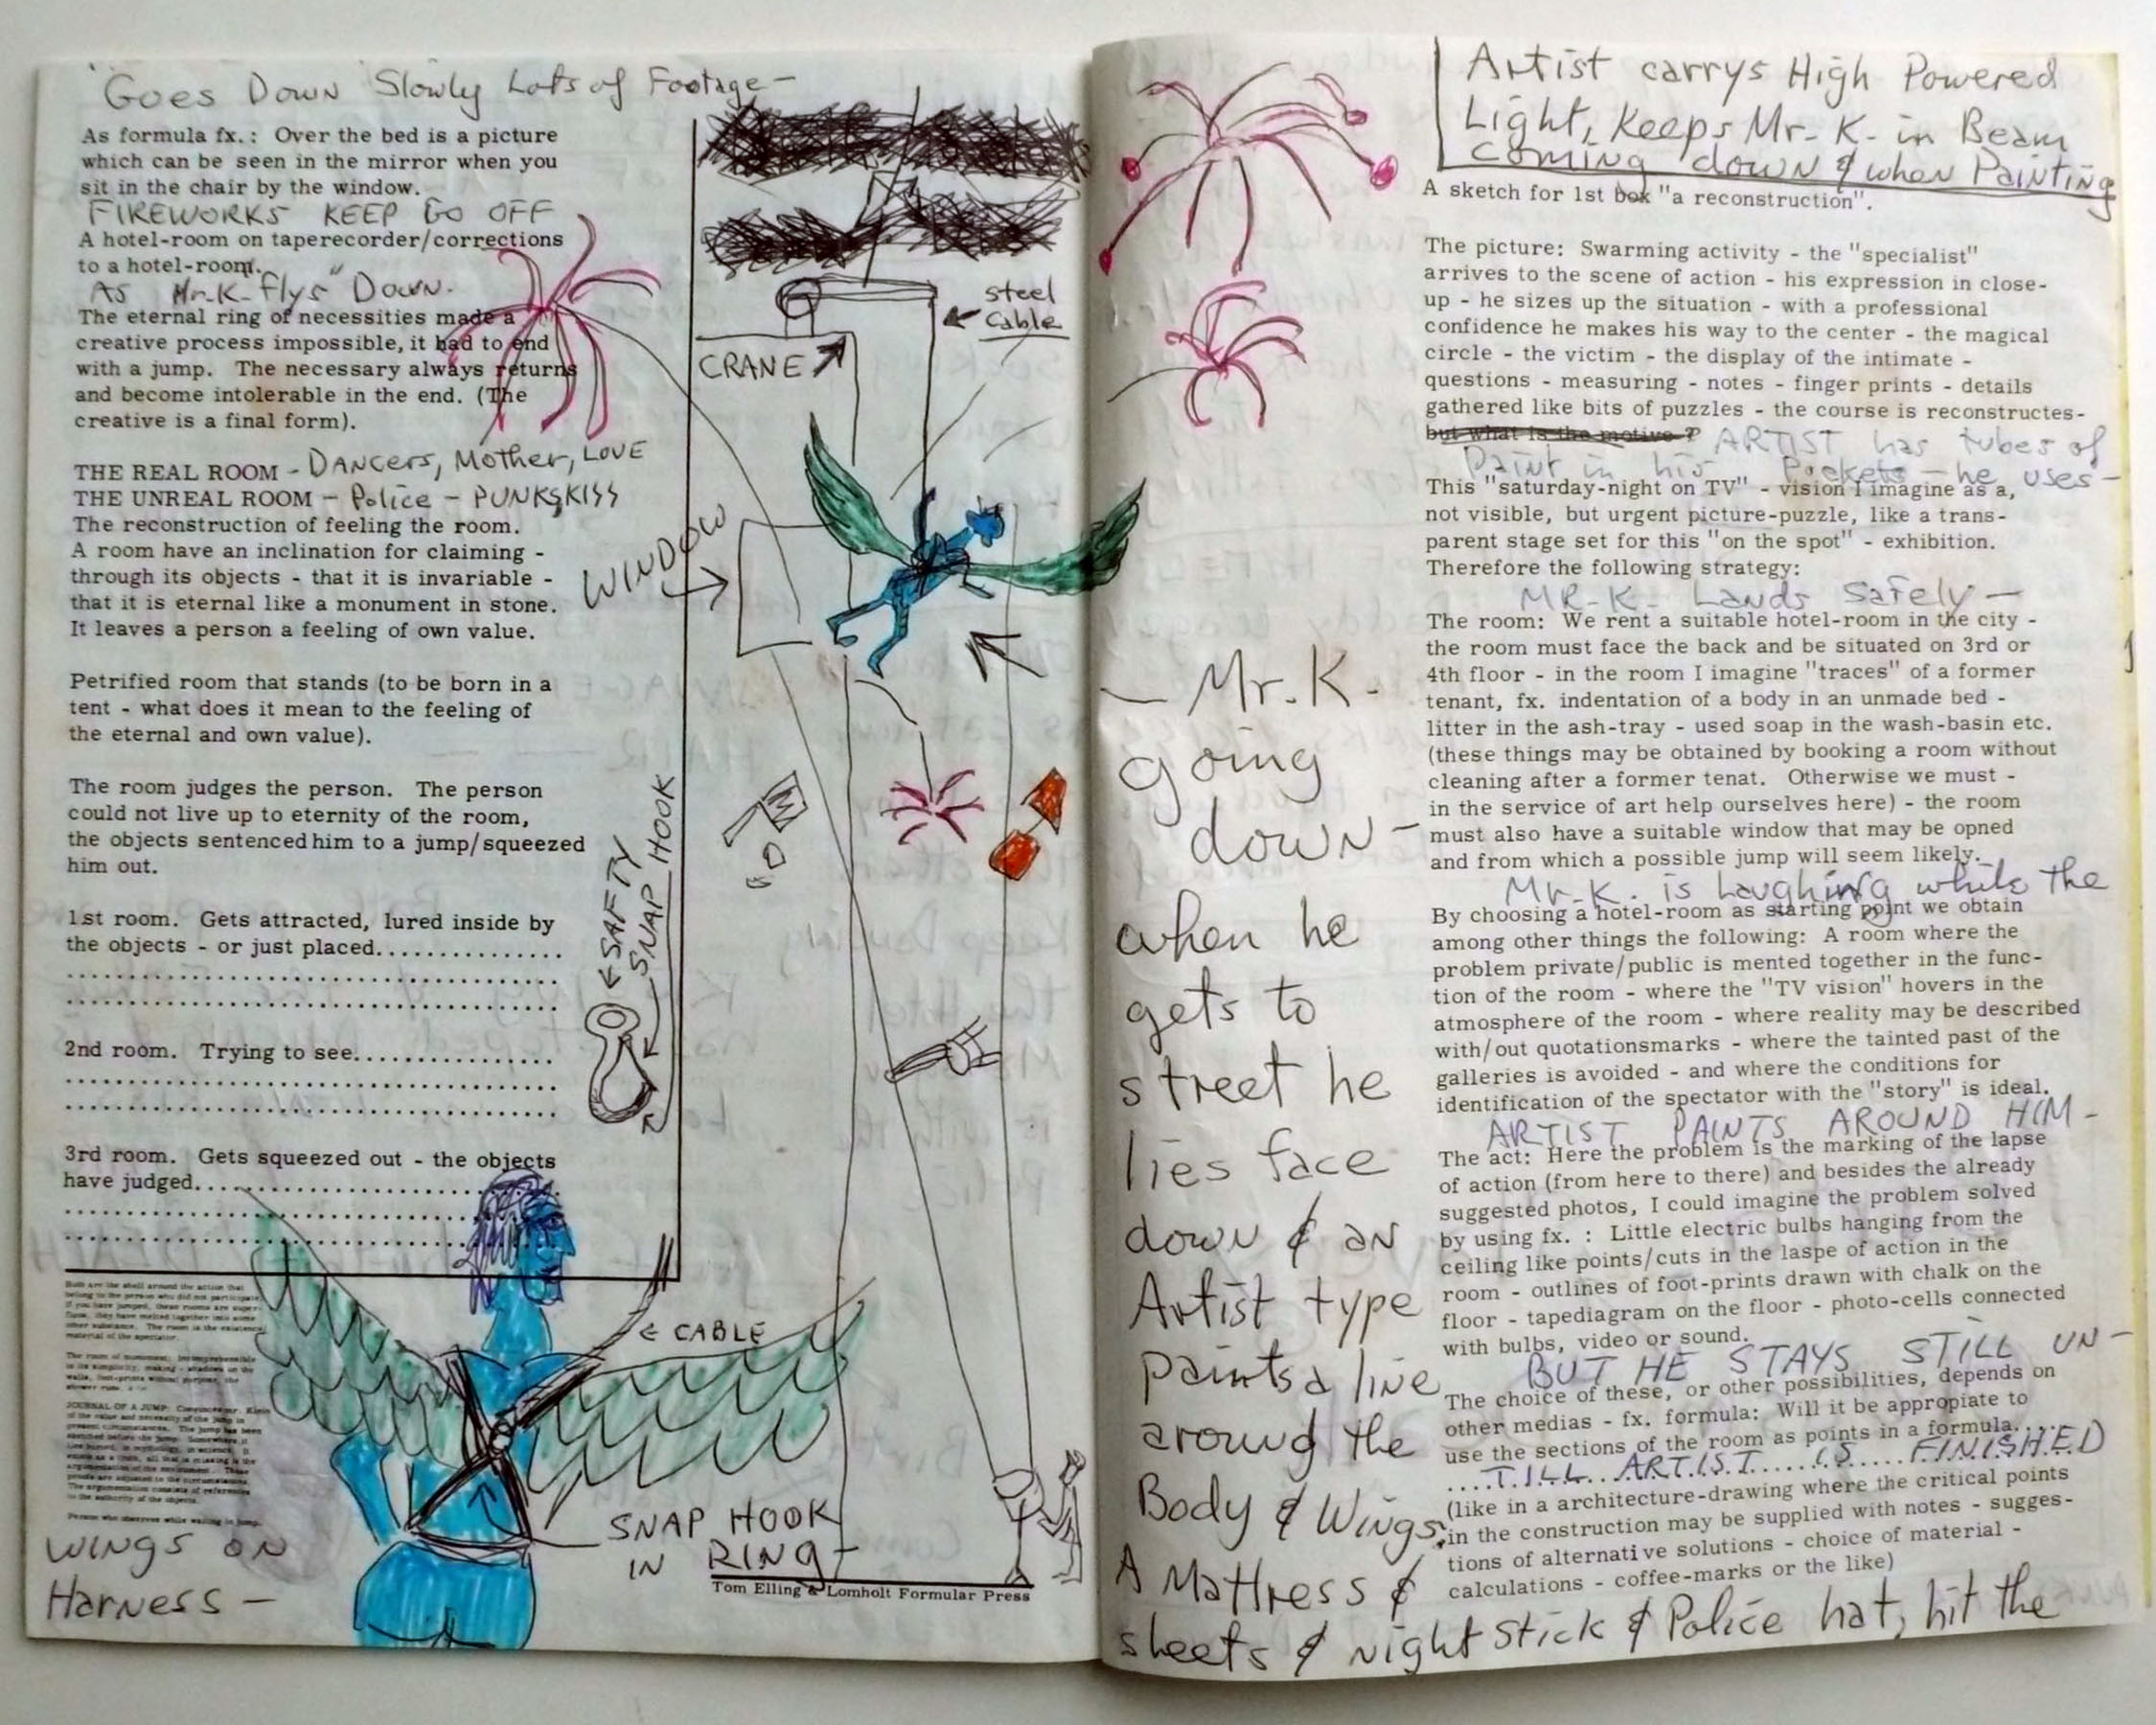 Goes Down Slowly Lots of Footage -
As formula fx.: Over the bed is a picture
which can be seen in the mirror when you
sit in the chair by the window.
FIREWORKS KEEP GO OFF
A hotel-room on taperecorder/corrections
to a hotel-room.
As Mr. K- flys" Down.
The eternal ring of necessities made a
creative process impossible, it had to end
with a jump. The necessary always returns
and become intolerable in the end. (The
creative is a final form).
THE REAL ROOM - DANCERS, Mother, LOVE
THE UNREAL ROOM - Police - PUNKS, KISS
The reconstruction of feeling the room.
A room have an inclination for claiming -
through its objects - that it is invariable -
that it is eternal like a monument in stone.
It leaves a person a feeling of own value.
Petrified room that stands (to be born in a
tent - what does it mean to the feeling of
the eternal and own value).
The room judges the person. The person
could not live up to eternity of the room,
the objects sentenced him to a jump/squeezed
him out.
1st room. Gets attracted, lured inside by
the objects - or just placed..............
2nd room. Trying to see................
3rd room. Gets squeezed out - the objects
have judged.
SAFTY
SNAP HOOK
steel
Cable
CRANE
WINDOW
CABLE
SNAP HOOK
IN RING -
WINGS ON
HARNESS -
JOURNAL OF A JUMP:
Tom Elling & Lomholt Formular Press
- Mr. K -
going
down -
when he
gets to
street he
lies face
down & an
Artist type
paints a line
around the
Body & Wings;
A Mattress &
sheets & night stick & Police hat, hit the
Artist carrys High Powered
Light, Keeps Mr- K- in Beam
coming down & when Painting
A sketch for 1st box "a reconstruction".
The picture: Swarming activity - the "specialist"
arrives to the scene of action - his expression in close-
up - he sizes up the situation - with a professional
confidence he makes his way to the center - the magical
circle - the victim - the display of the intimate -
questions - measuring - notes - finger prints - details
gathered like bits of puzzles - the course is reconstructes-
but what is the motive ?
ARTIST has tubes of
Paint in his Pockets - he uses -
This "saturday-night on TV" - vision I imagine as a,
not visible, but urgent picture-puzzle, like a trans-
parent stage set for this "on the spot" - exhibition.
Therefore the following strategy:
MR-K- Lands Safely -
The room: We rent a suitable hotel-room in the city -
the room must face the back and be situated on 3rd or
4th floor - in the room I imagine "traces" of a former
tenant, fx. indentation of a body in an unmade bed -
litter in the ash-tray - used soap in the wash-basin etc.
(these things may be obtained by booking a room without
cleaning after a former tenat. Otherwise we must -
in the service of art help ourselves here) - the room
must also have a suitable window that may be opned
and from which a possible jump will seem likely.
Mr-K. is laughing while the
By choosing a hotel-room as starting point we obtain
among other things the following: A room where the
problem private/public is mented together in the func-
tion of the room - where the "TV vision" hovers in the
atmosphere of the room - where reality may be described
with/out quotationsmarks - where the tainted past of the
galleries is avoided - and where the conditions for
identification of the spectator with the "story" is ideal.
ARTIST PAINTS AROUND HIM -
The act: Here the problem is the marking of the lapse
of action (from here to there) and besides the already
suggested photos, I could imagine the problem solved
by using fx. : Little electric bulbs hanging from the
ceiling like points/cuts in the laspe of action in the
room - outlines of foot-prints drawn with chalk on the
floor - tapediagram on the floor - photo-cells connected
with bulbs, video or sound.
BUT HE STAYS STILL UN-
The choice of these, or other possibilities, depends on
other medias - fx. formula: Will it be appropiate to
use the sections of the room as points in a formula....
TILL ARTIST IS FINISHED
(like in a architecture-drawing where the critical points
in the construction may be supplied with notes - sugges-
tions of alternative solutions - choice of material -
calculations - coffee-marks or the like)